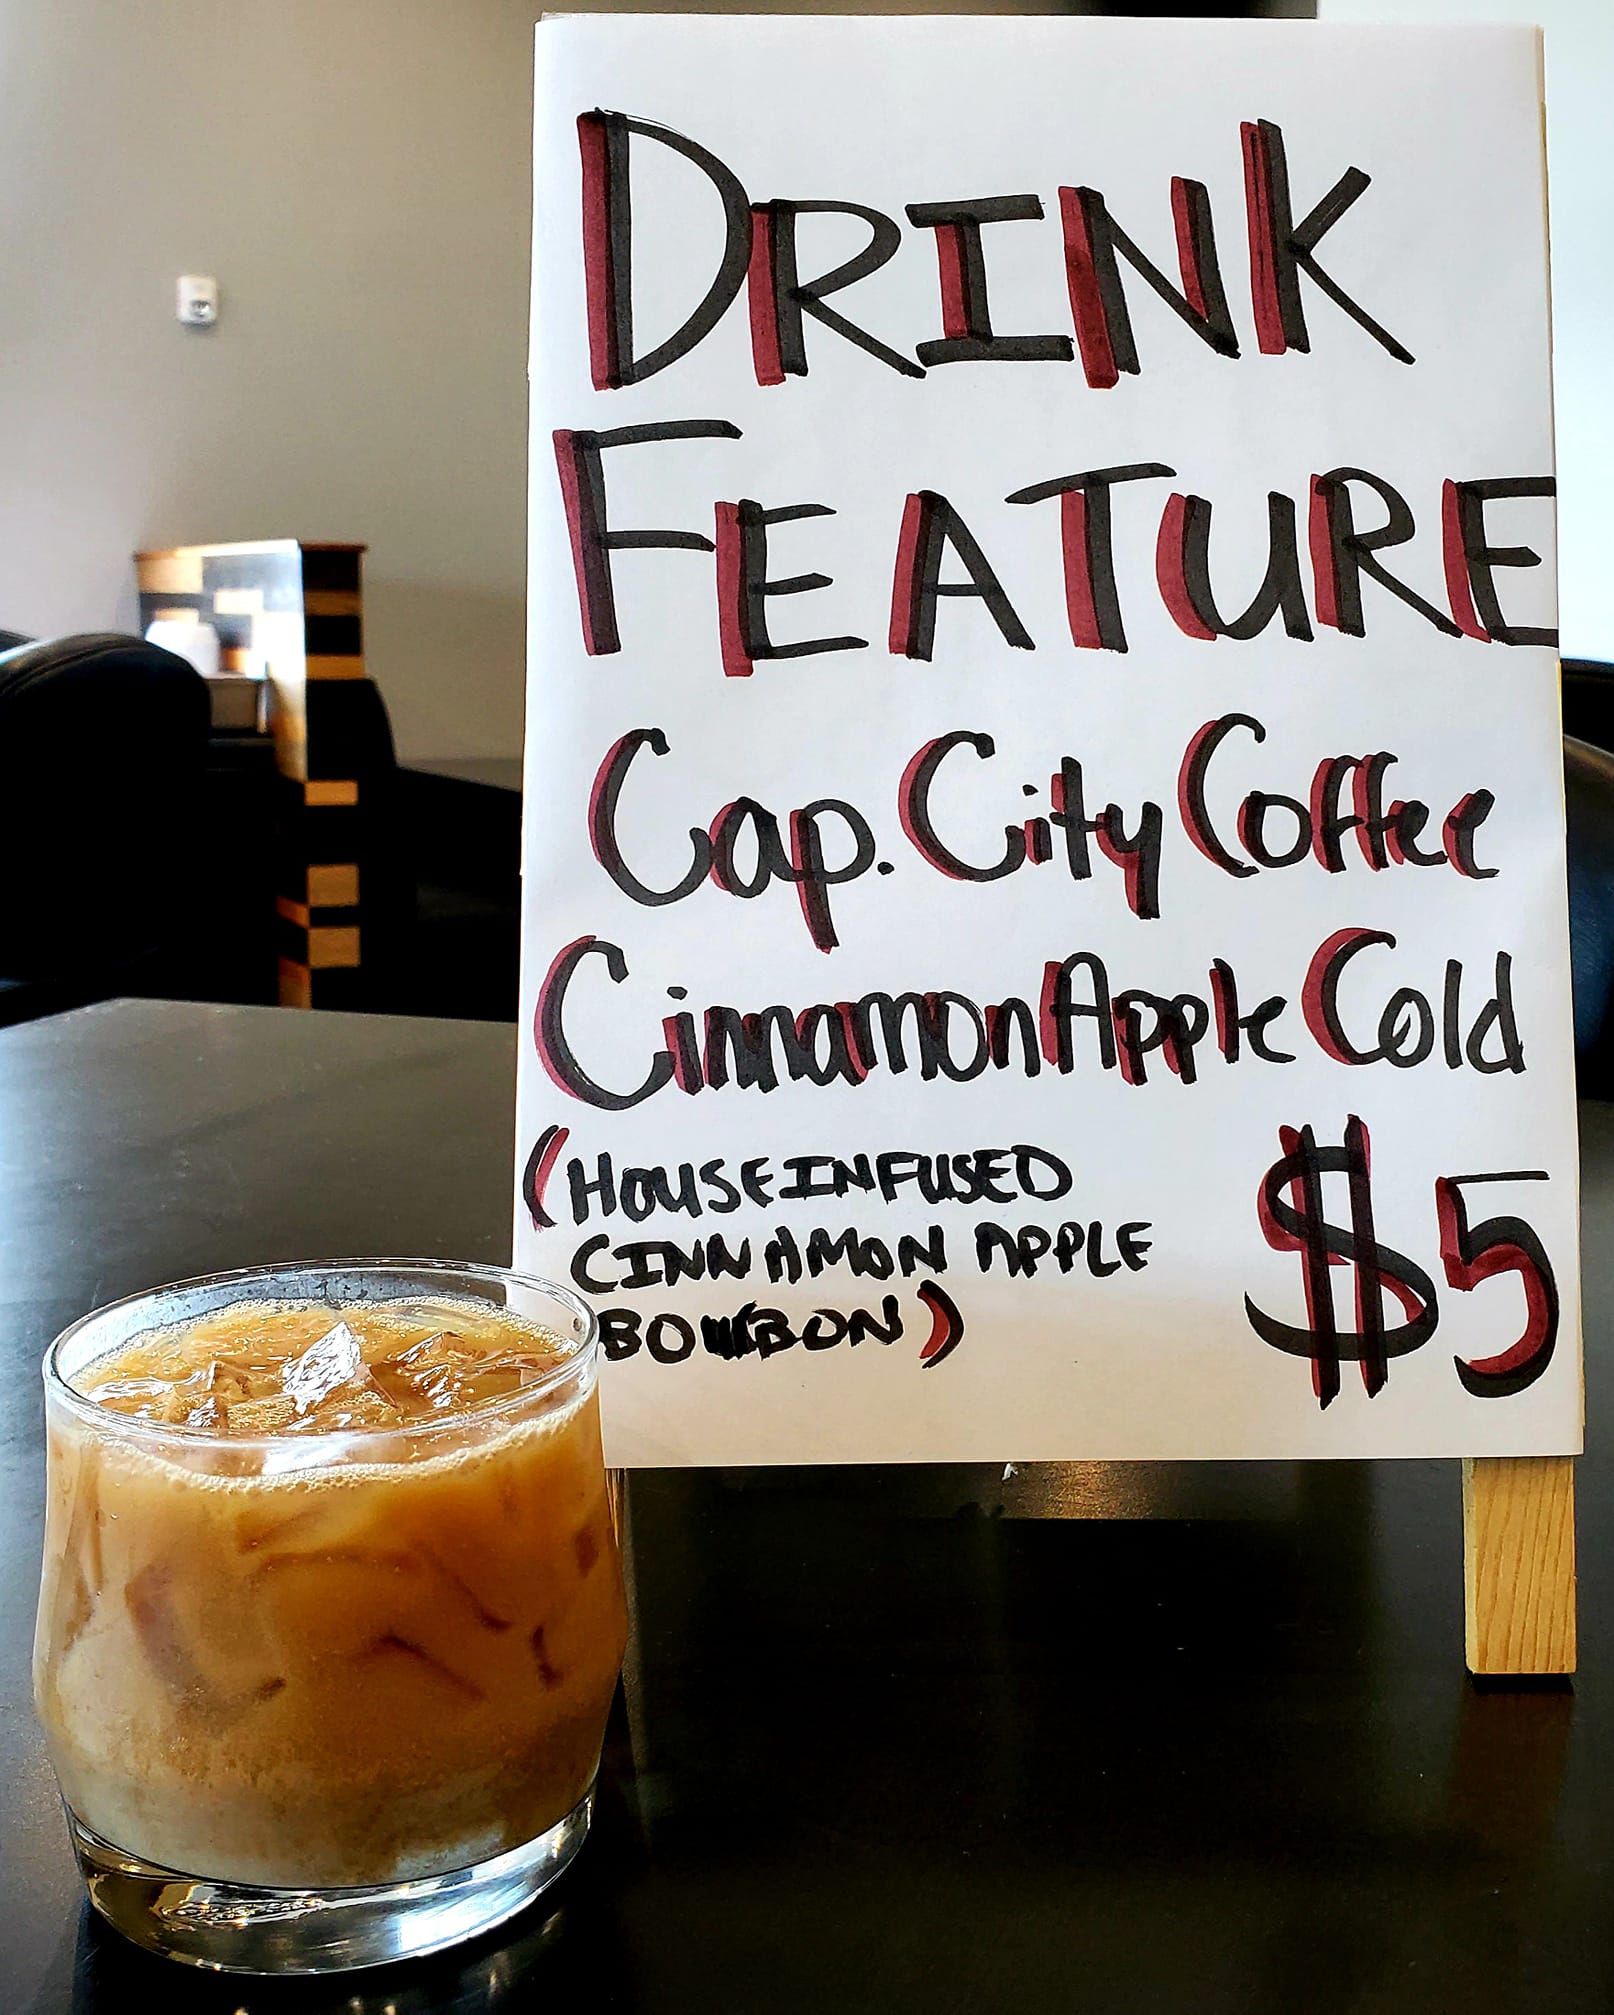 DRINK
FEATURE
Cap. City Coffee
Cinnamon Apple Cold
(HOUSE INFUSED
CINNAMON APPLE
BOURBON)
$5